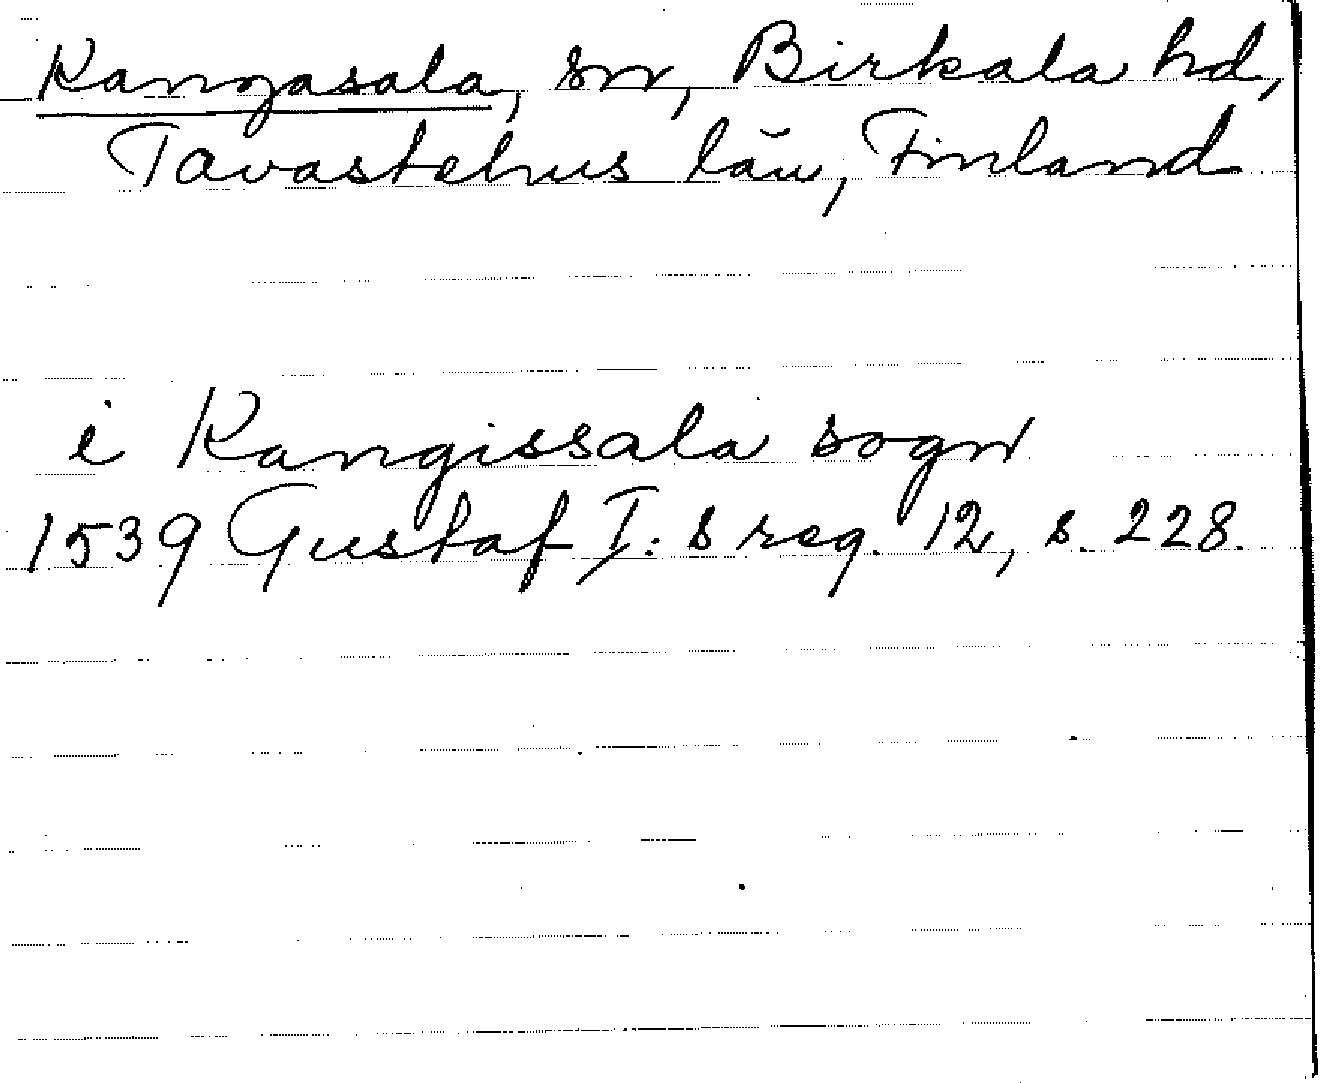 Kangasala, sn, Birkala hd,
Tavastehus län, Finland
i Kangissala sogn
1539 Gustaf I:s reg. 12, s. 228.